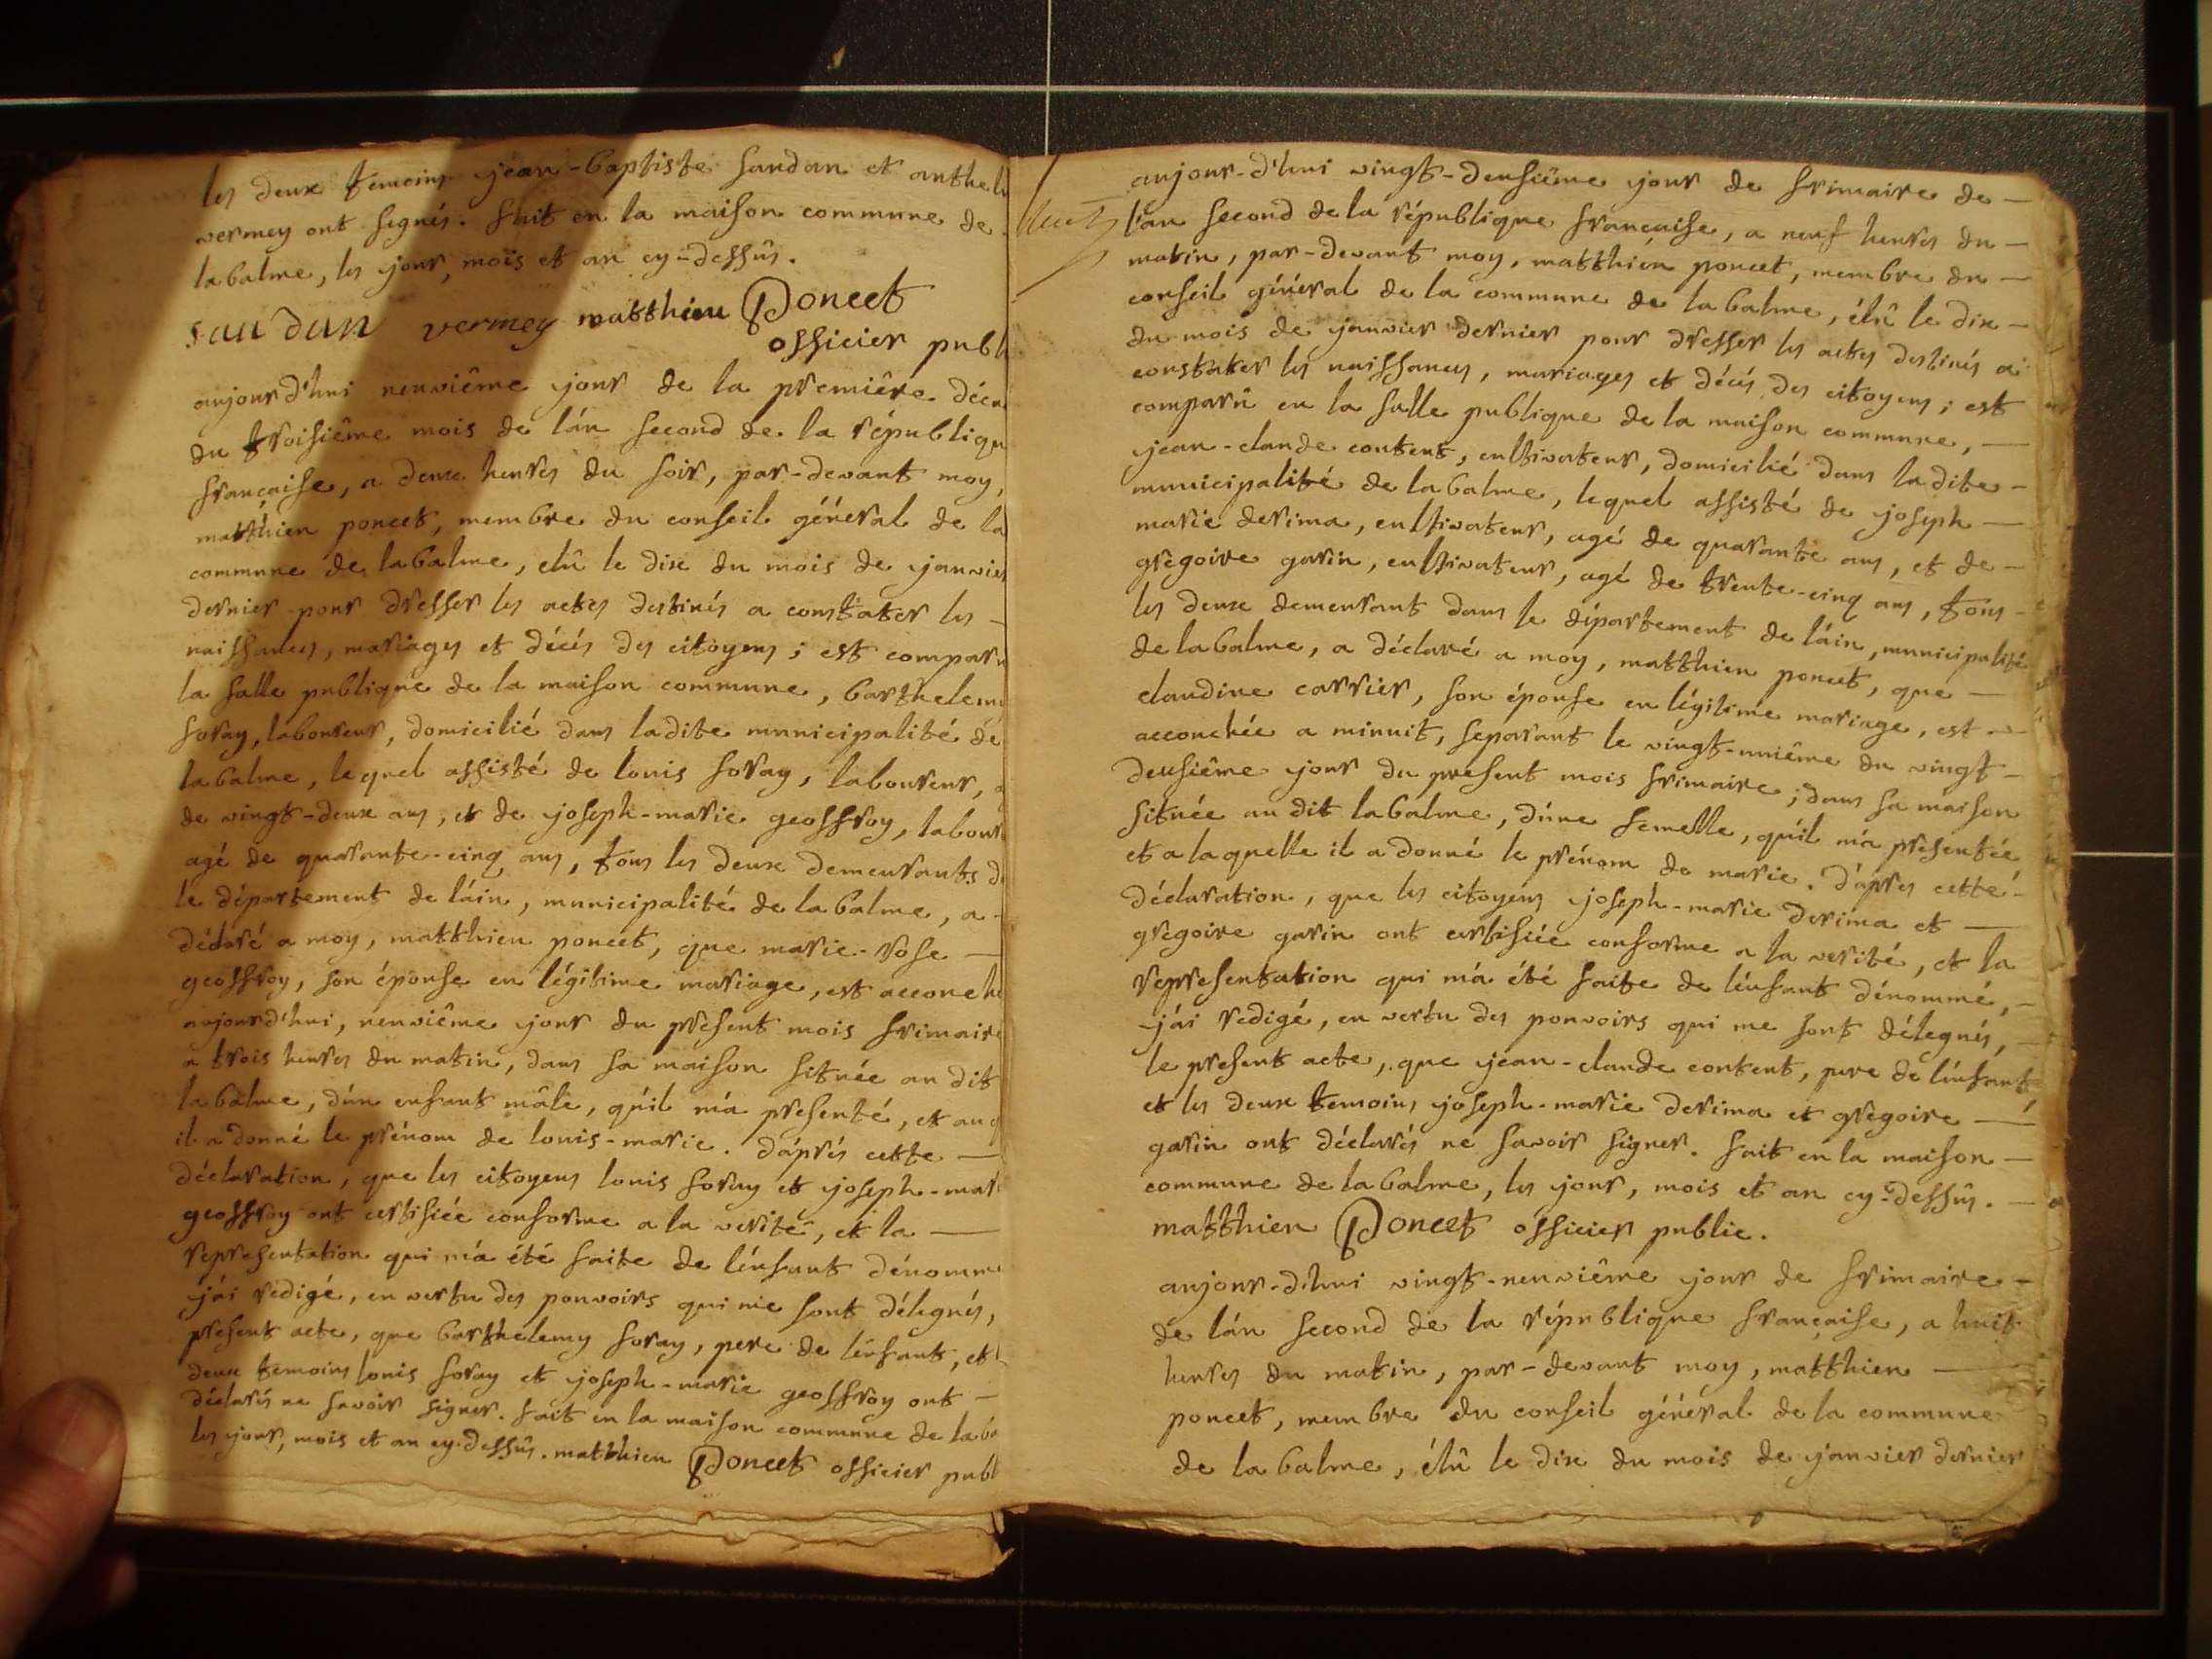 les deux temoins jean-baptiste sandan et anthel
vermey ont signés. fait en la maison commune de
labalme, les jour, mois et an cy-dessûs.
sandan vermey matthieu Poncet
officier publ
aujourd'hui neuviême jour de la premiêre déca
du troisiême mois de l'án second de la républiqu
française, a deux heures du soir, par-devant moy,
matthieu poncet, membre du conseil général de la
commune de labalme, elû le dix du mois de janvier
dernier pour dresser les actes destinés a constater les -
naissances, mariages et décés des citoyens; est comparu
la salle publique de la maison commune, barthelemy
foray, laboureur, domicilié dans ladite municipalité de
labalme, lequel assisté de louis foray, laboureur, a
de vingt-deux ans, et de joseph-marie geoffroy, labour
agé de quarante-cinq ans, tous les deux demeurants d
le département de láin, municipalité de labalme, a -
déclaré a moy, matthieu poncet, que marie-rose -
geoffroy, son épouse en légitime mariage, est accouche
aujourd'hui, neuviême jour du present mois frimaire
a trois heures du matin, dans sa maison située au dit
labalme, dún enfant mâle, qúil má presenté, et auq
il a donné le prénom de louis-marie. dáprés cette -
déclaration, que les citoyens louis foray et joseph-mari
geoffroy ont certifiée conforme a la verité, et la -
representation qui má été faite de lénfant dénommé
jái redigé, en vertu des pouvoirs qui me sont délegués,
present acte, que barthelemy foray, pere de lénfant, et l
deux temoins louis foray et joseph-marie geoffroy ont -
déclarés ne savoir signer. fait en la maison commune de laba
les jour, mois et an cy-dessûs. matthieu Poncet officier publ
aujour-d'hui vingt-deusiême jour de frimaire de -
lán second de la république française, a neuf heures du -
matin, par-devant moy, matthieu poncet, membre du -
conseil général de la commune de labalme, élû le dix -
du mois de janvier dernier pour dresser les actes destinés a
constater les naissances, mariages et décés des citoyens; est
comparû en la salle publique de la maison commune, -
jean-claude content, cultivateur, domicilié dans ladite -
municipalité de labalme, lequel assisté de joseph -
marie derima, cultivateur, agé de quarante ans, et de -
grégoire garin, cultivateur, agé de trente-cinq ans, tous -
les deux demeurant dans le département de láin, municipalité
de labalme, a déclaré a moy, matthieu poncet, que -
claudine carrier, son épouse en légitime mariage, est -
accouchée a minuit, separant le vingt-uniême du vingt-
deusiême jour du present mois frimaire; dans sa maison
située au dit labalme, dúne femelle, qúil má presentée
et a laquelle il a donné le prénom de marie. dáprés cette -
déclaration, que les citoyens joseph-marie derima et -
grégoire garin ont certifiée conforme a la verité, et la
representation qui má été faite de lénfant dénommé, -
jái redigé, en vertu des pouvoirs qui me sont délegués, -
le present acte, que jean-claude content, pere de lénfant,
et les deux temoins joseph-marie derima et grégoire -
garin ont déclarés ne savoir signer. fait en la maison -
commune de labalme, les jour, mois et an cy-dessûs. -
matthieu Poncet officier public.
aujour-d'hui vingt-neuviême jour de frimaire -
de lán second de la république française, a huit
heures du matin, par-devant moy, matthieu -
poncet, membre du conseil général de la commune
de labalme, élû le dix du mois de janvier dernier